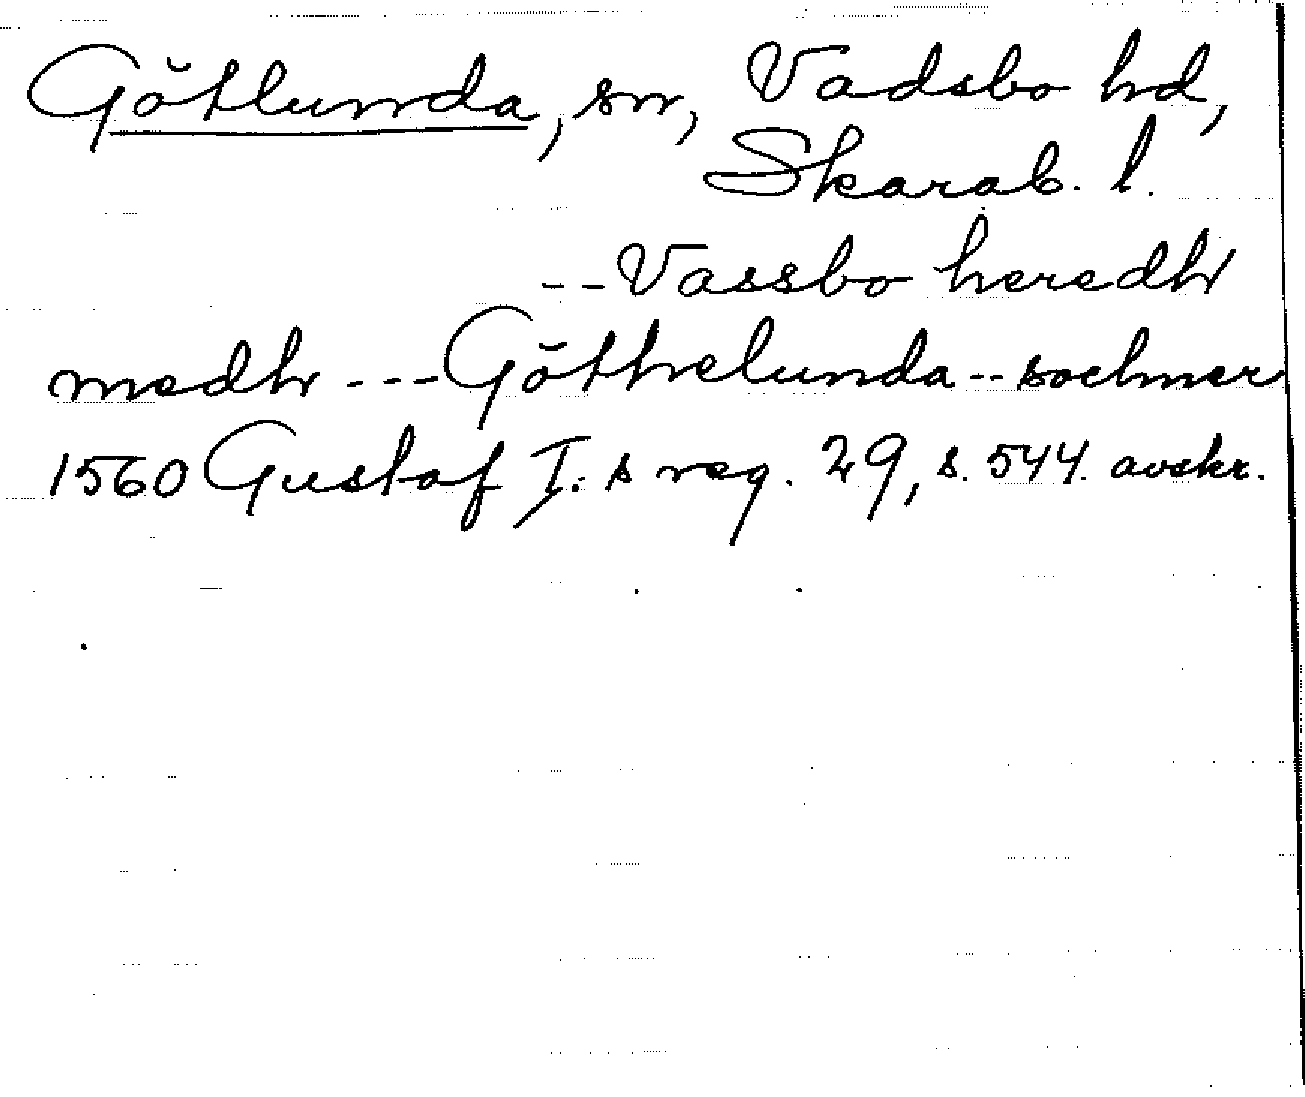 Götlunda, sn, Vadsbo hd,
Skarab. l.
-- Vassbo heredh
medh --- Göthelunda -- sochner
1560 Gustaf I:s reg. 29, s. 544. avskr.